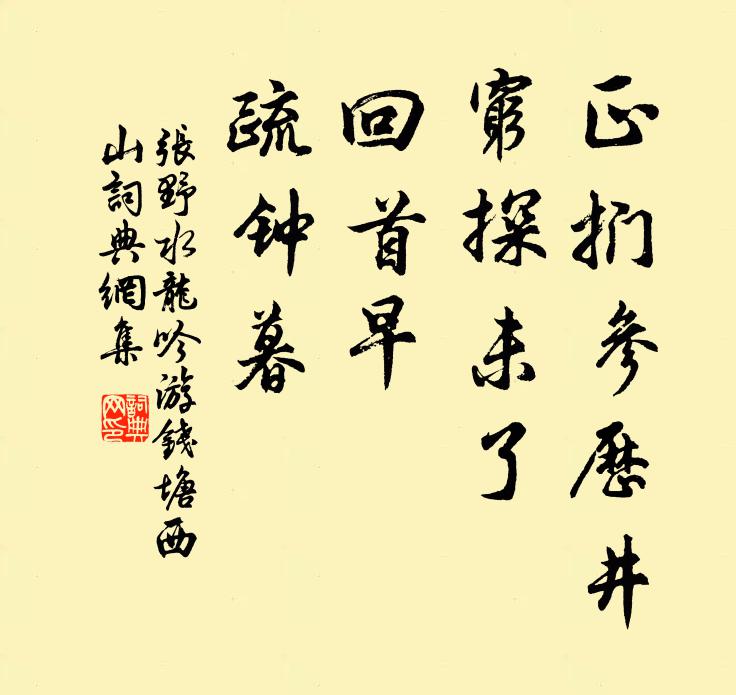 正扪参历井
穷探未了
回首早
疏钟暮
張野水龍吟游錢塘西
山詞典網集
詞典
网印